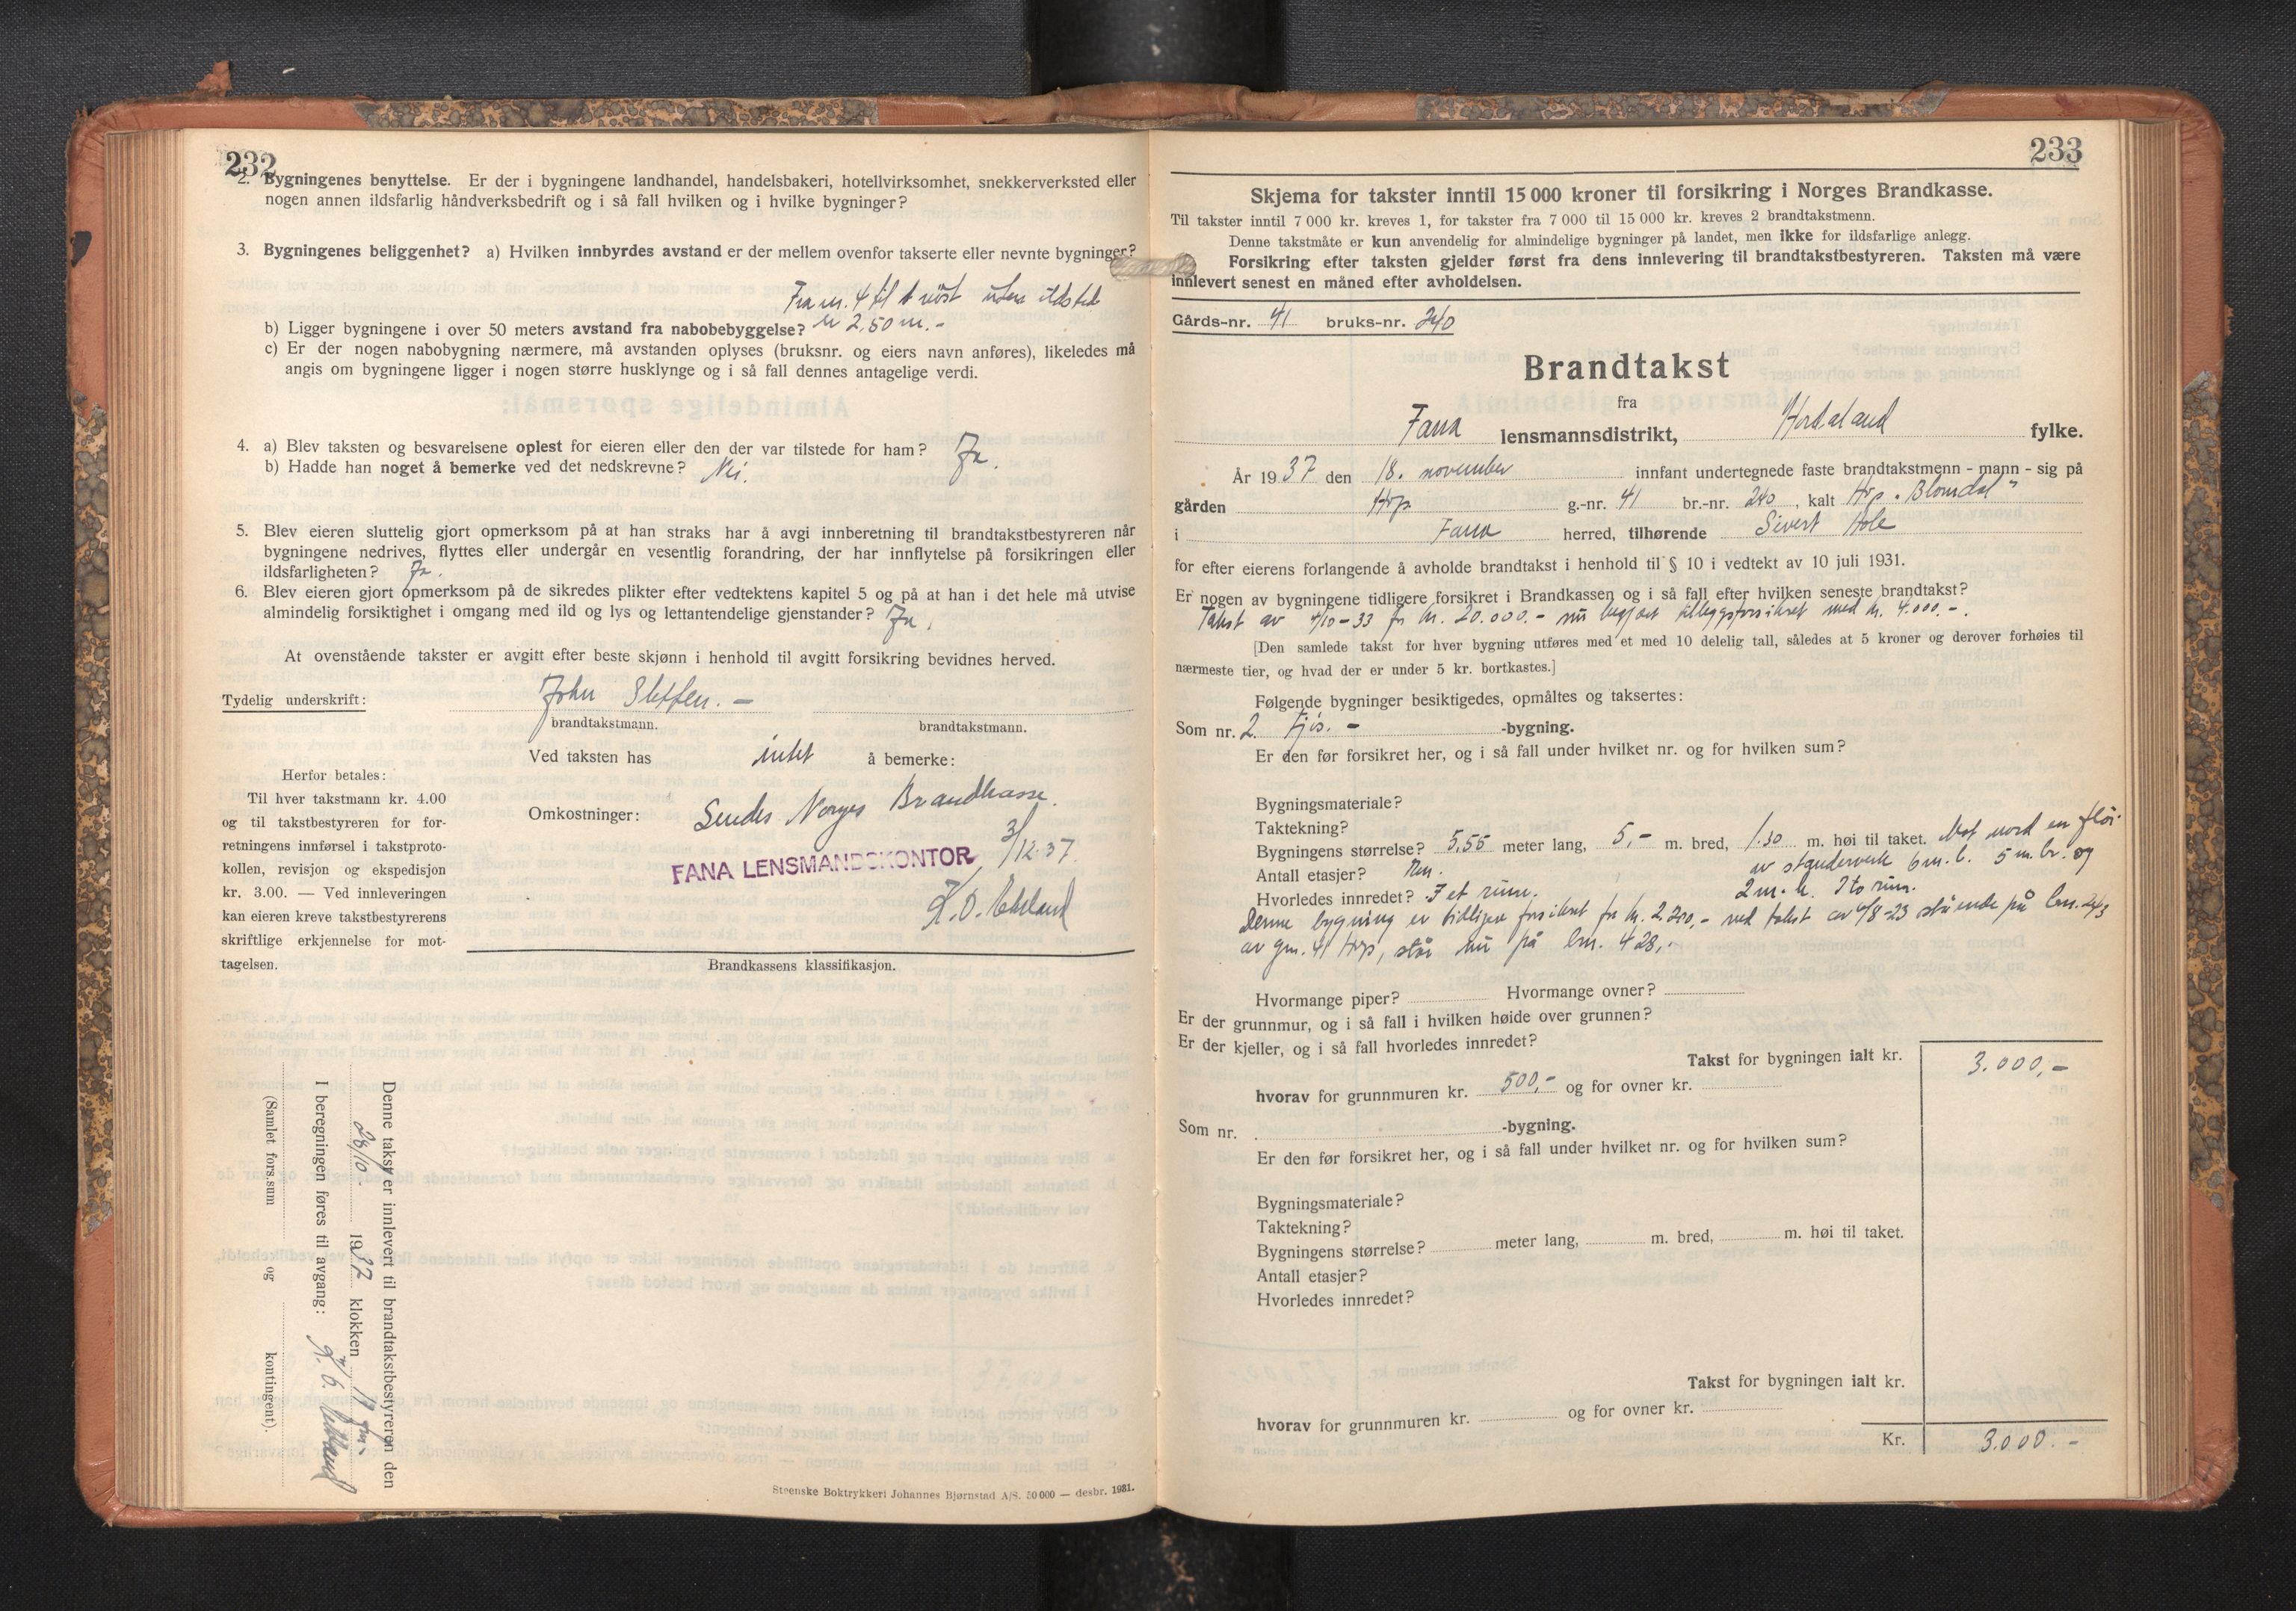 232
2. Bygningenes benyttelse. Er der i bygningene landhandel, handelsbakeri, hotellvirksomhet, snekkerverksted eller
nogen annen ildsfarlig håndverksbedrift og i så fall hvilken og i hvilke bygninger?
3. Bygningenes beliggenhet? a) Hvilken innbyrdes avstand er der mellem ovenfor takserte eller nevnte bygninger?
Fra nr. 4 til 1 uten ildsted
er 2.50 m. -
b) Ligger bygningene i over 50 meters avstand fra nabobebyggelse?
c) Er der nogen nabobygning nærmere, må avstanden oplyses (bruksnr. og eiers navn anføres), likeledes må
angis om bygningene ligger i nogen større husklynge og i så fall dennes antagelige verdi.
4. a) Blev taksten og besvarelsene oplest for eieren eller den der var tilstede for ham? Ja.
b) Hadde han noget å bemerke ved det nedskrevne? Nei.
5. Blev eieren sluttelig gjort opmerksom på at han straks har å avgi innberetning til brandtakstbestyreren når
bygningene nedrives, flyttes eller undergår en vesentlig forandring, der har innflytelse på forsikringen eller
ildsfarligheten? Ja.
6. Blev eieren gjort opmerksom på de sikredes plikter efter vedtektens kapitel 5 og på at han i det hele må utvise
almindelig forsiktighet i omgang med ild og lys og lettantendelige gjenstander? Ja.
At ovenstående takster er avgitt efter beste skjønn i henhold til avgitt forsikring bevidnes herved.
Tydelig underskrift: John Steffen. -
brandtakstmann. brandtakstmann.
Ved taksten has intet å bemerke:
Herfor betales:
Til hver takstmann kr. 4.00
og til takstbestyreren for for-
retningens innførsel i takstproto-
kollen, revisjon og ekspedisjon
kr. 3.00. — Ved innleveringen
kan eieren kreve takstbestyrerens
skriftlige erkjennelse for mot-
tagelsen.
Omkostninger: Sendes Norges Brandkasse.
3/12-37.
FANA LENSMANDSKONTOR
Brandkassens klassifikasjon.
Denne takst er innlevert til brandtakstbestyreren den
28/10 1937 klokken 17
I beregningen føres til avgang:
(Samlet fors.sum og kontingent).
Steenske Boktrykkeri Johannes Bjørnstad A/S. 50 000 — desbr. 1931.
233
Skjema for takster inntil 15 000 kroner til forsikring i Norges Brandkasse.
Til takster inntil 7 000 kr. kreves 1, for takster fra 7 000 til 15 000 kr. kreves 2 brandtakstmenn.
Denne takstmåte er kun anvendelig for almindelige bygninger på landet, men ikke for ildsfarlige anlegg.
Forsikring efter taksten gjelder først fra dens innlevering til brandtakstbestyreren. Taksten må være
innlevert senest en måned efter avholdelsen.
Gårds-nr. 41 bruks-nr. 240
Brandtakst
fra
Fana lensmannsdistrikt, Hordaland fylke.
År 1937 den 18. november innfant undertegnede faste brandtakstmenn - mann - sig på
gården Hop g.-nr. 41 br.-nr. 240, kalt Hop "Blomdal"
i Fana herred, tilhørende Sivert Hole
for efter eierens forlangende å avholde brandtakst i henhold til § 10 i vedtekt av 10 juli 1931.
Er nogen av bygningene tidligere forsikret i Brandkassen og i så fall efter hvilken seneste brandtakst?
Takst av 4/10-33 for kr. 20.000.- nu begjært tilleggsforsikret med kr. 4.000.-.
[Den samlede takst for hver bygning utføres med et med 10 delelig tall, således at 5 kroner og derover forhøies til
nærmeste tier, og hvad der er under 5 kr. bortkastes.]
Følgende bygninger besiktigedes, opmåltes og taksertes:
Som nr. 2. Fjøs. - -bygning.
Er den før forsikret her, og i så fall under hvilket nr. og for hvilken sum?
Bygningsmateriale?
Taktekning?
Bygningens størrelse? 5,55 meter lang, 5,- m. bred, 1.30 m. høi til taket. Mot nord en fløi
Antall etasjer? av stenderverk 6 m. l. 5 m. br. og
Hvorledes innredet? I et rum. 2 m. h. I to rum.
Denne bygning er tidligere forsikret for kr. 2.200,- ved takst av 6/8-23 stående på bnr. 243
av gnr. 41 Hop, står nu på bnr. 428,-
Hvormange piper? Hvormange ovner?
Er der grunnmur, og i så fall i hvilken høide over grunnen?
Er der kjeller, og i så fall hvorledes innredet?
Takst for bygningen ialt kr. 3.000,-
hvorav for grunnmuren kr. 500,- og for ovner kr.
Som nr. -bygning.
Er den før forsikret her, og i så fall under hvilket nr. og for hvilken sum?
Bygningsmateriale?
Taktekning?
Bygningens størrelse? meter lang, m. bred, m. høi til taket.
Antall etasjer?
Hvorledes innredet?
Takst for bygningen ialt kr.
hvorav for grunnmuren kr. og for ovner kr.
Kr. 3.000.-